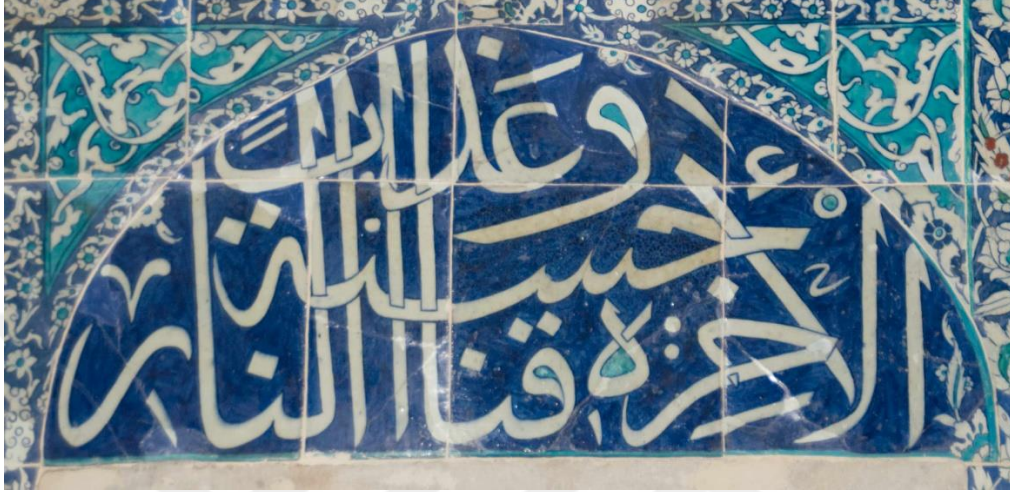 الاخرة حسنة وقنا عذاب النار